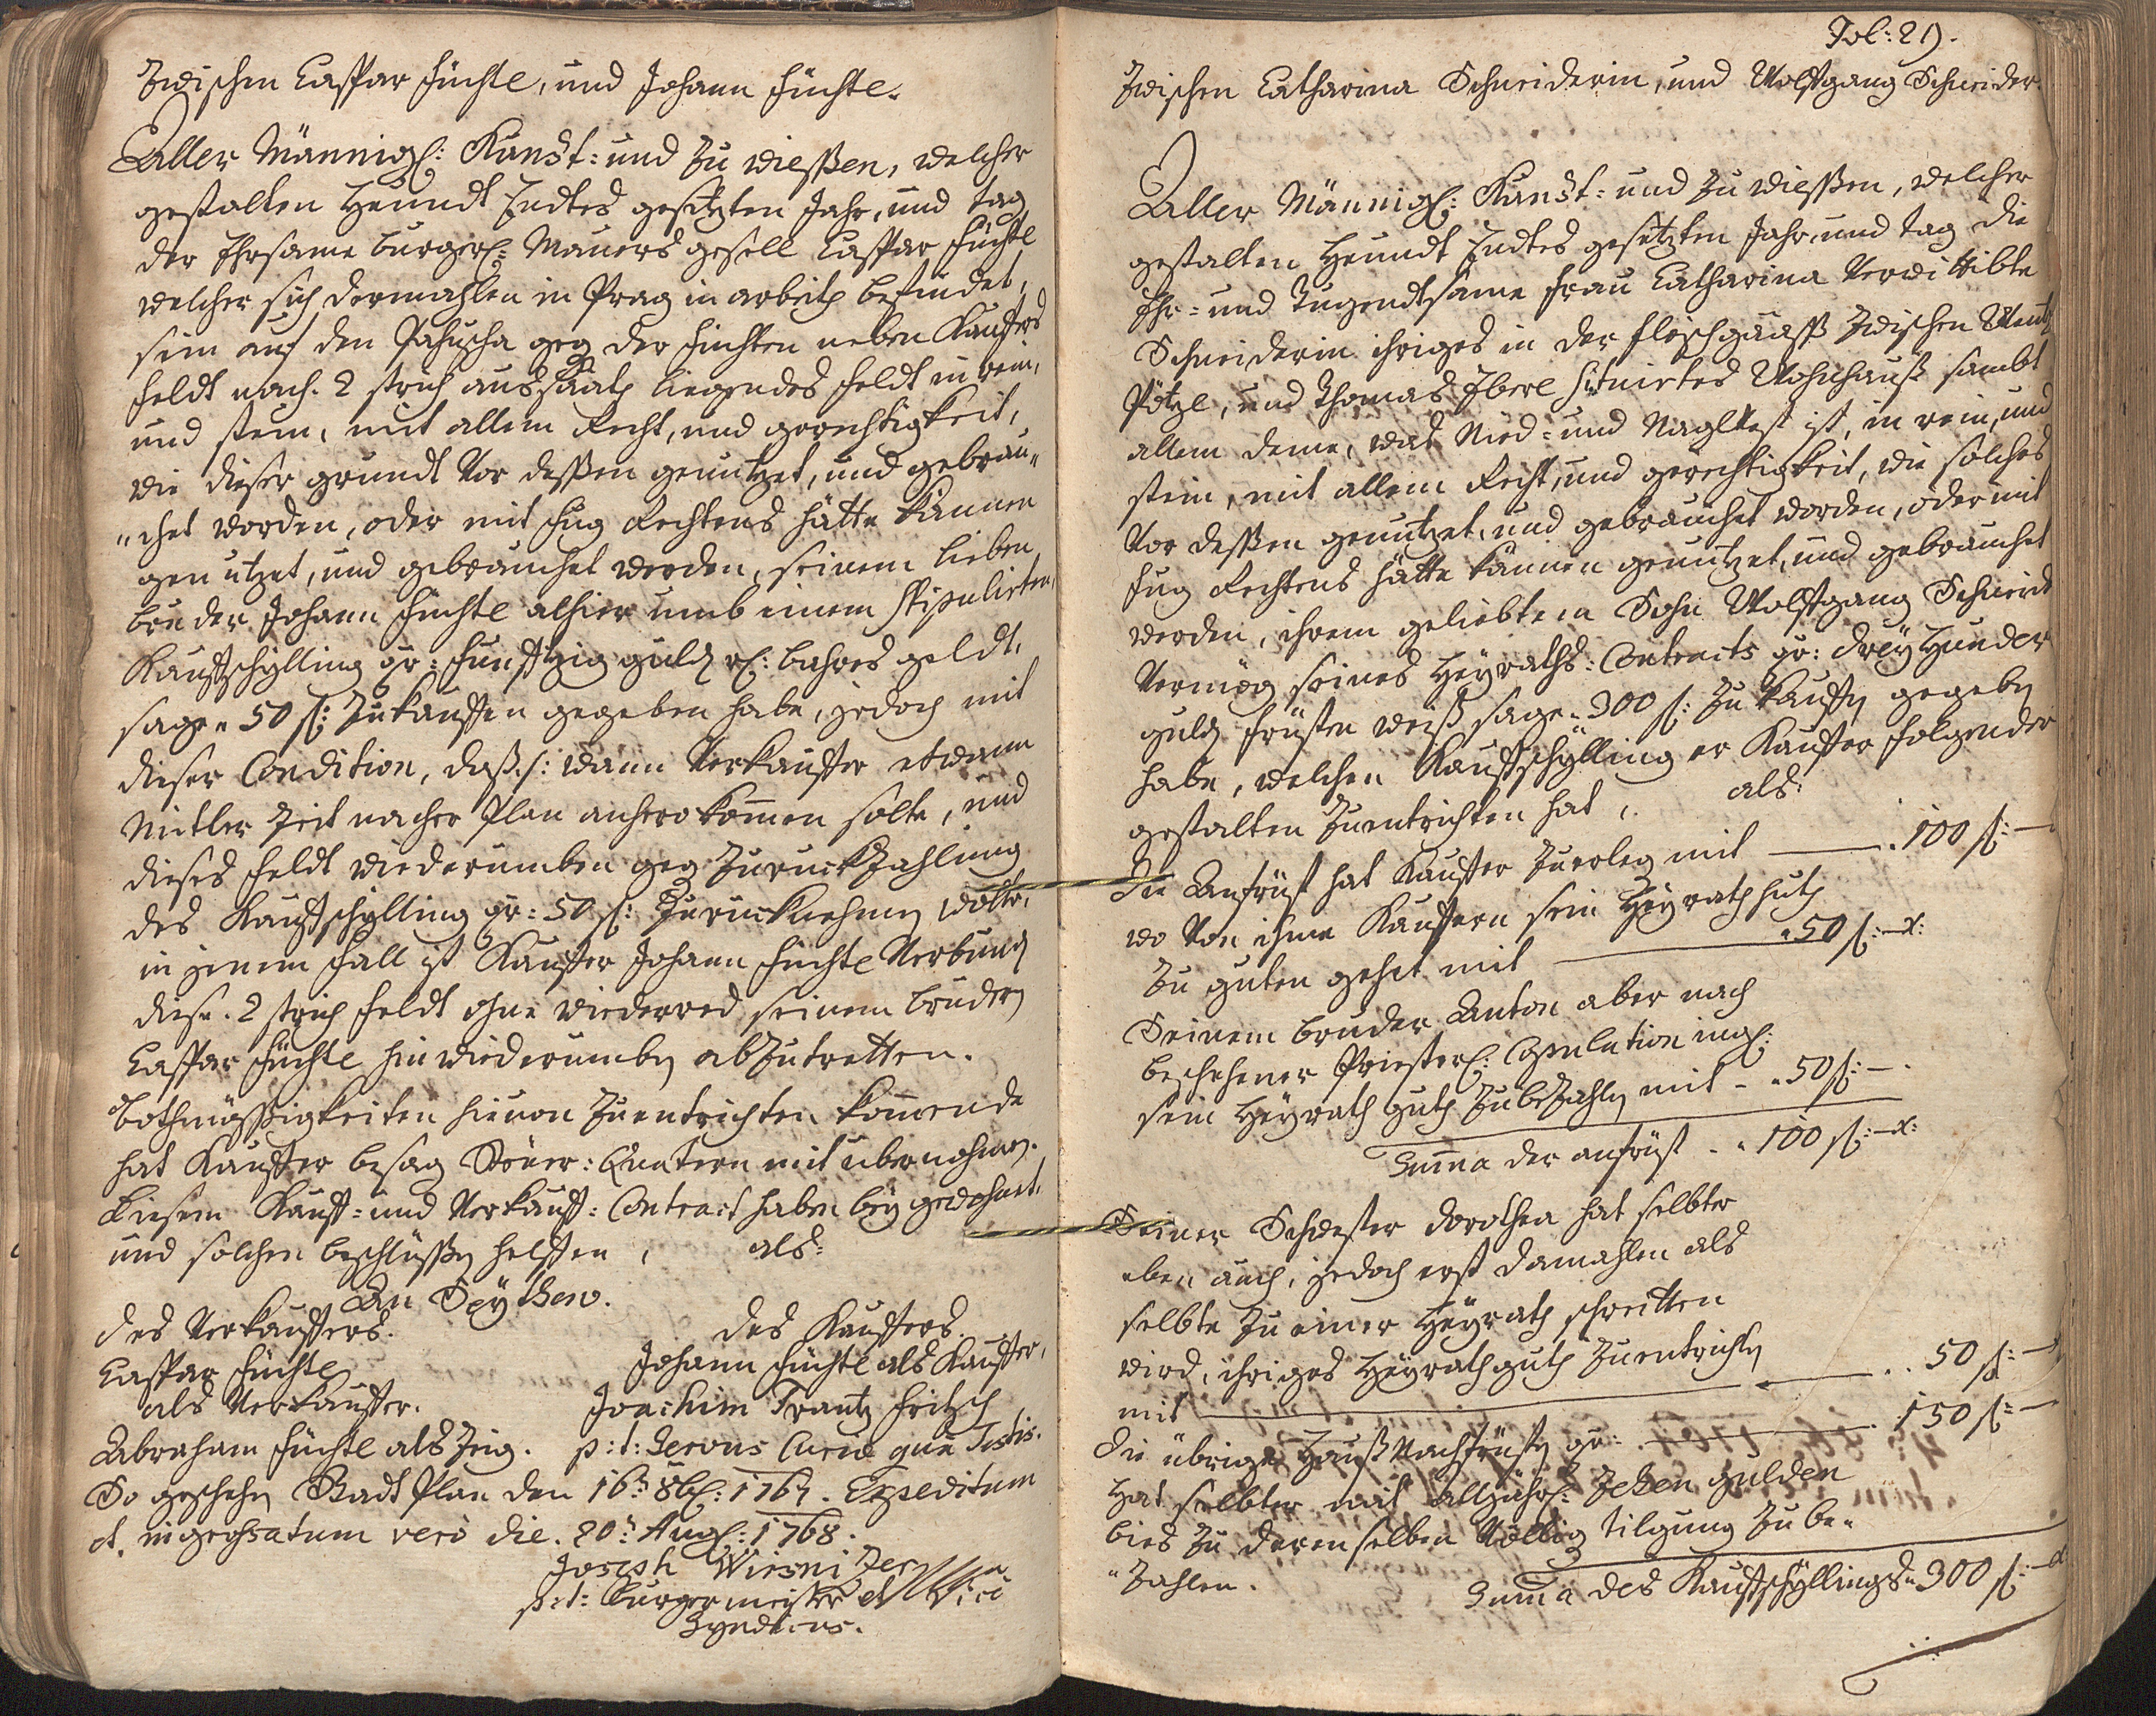 Zwischen Caspar Füchtl, und Johann Füchtl.
Aller Männigl: Kundt: und zu wießen, welcher
gestalten Heundt Endtes gesetzten Jahr, und tag
der Ehrsame burgerl: Maurersgesell Caspar Füchtl
welcher sich dermahlen in Prag in arbeith befindet,
sein auf den geg der Fichten neben Kauffers
Feldt nach. 2 strich aussaath liegendes Feldt in rein,
und stein, mit allem Recht, und gerechtigkeit,
wie dieser grundt vor deßen genutzet, und gebrau„
„chet worden, oder mit fug Rechtens hätte können
genutzet, und gebrauchet werden, seinem lieben
bruder Johann Füchtl alhier umb einem stipulirten
Kauffschylling pr: Funftzig guld rh: bahres geldt,
sage „ 50 fl: zukauffen gegeben habe, jedoch mit
dieser Condition, daß /: wann Verkauffer etwann
Mitler Zeit nacher Plan anhero kommen solte, und
dieses Feldt wiederumben geg Zuruckzahlung
des Kauffschylling pr: 50 fl: zuruckhnehmen wolte,
in jenem Fall ist Kauffer Johann Füchtl Verbund
diese. 2 strich Feldt ohne wiederred seinem brudern
Caspar Füchtl hinwiederumben abzutretten.
bothmäßigkeiten hievon zuentrichten kommende
hat Kauffer besag Steuer: Quatern mit übernohmen.
Diesem Kauff: und Verkauff: Contract haben bey gewohnet,
und solchen beschlüßen helffen, als:
An Seythen.
des Verkauffers. des Kauffers.
Caspar Füchtl Johann Füchtl als Kauffer,
als Verkauffer. Joachim Frantz Fritzsch
Abraham Füchtl als Zeig. p: t: Servus Curiae qua Testis.
So geschehen Stadt Plan den 16ten 8br: 1767. Expeditum
et ingrossatum vero die. 20: Augl: 1768.
Joseph Wiesnizer
p: t: Burgermeister et
Syndicus.
Fol: 29.
Zwischen Catharina Schneiderin, und Wolffgang Schneider.
Aller Männigl: Kundt: und zu wießen, welcher
gestalten Heundt Endtes gesetzten Jahr, und tag die
Ehr: und Tugendtsame Frau Catharina Verwittibte
Schneiderin ihriges in der Fleischgaass zwischen
Pötzl, und Thomas Eberl situirtes Wohnhauß sambt
allem deme, was Nied: und Naglvest ist, in rein, und
stein, mit allem Recht, und gerechtigkeit, wie solches
vor deßen genutzet, und gebrauchet worden, oder mit
fug Rechtens hätte können genutzet, und gebrauchet
werden, ihrem geliebten Sohn Wolffgang Schneider
Vermög seines Heyraths: Contracts pr: drey Hundert
guld fristen weiß sage „ 300 fl: zu kauffen gegeben
habe, welchen Kauffschylling er Kauffer folgender
gestalten zuentrichten hat, als:
Die Anfrüst hat Kauffer zuerleg mit . 100 fl: —
wo von ihme Kauffern sein Heyrathguth
zu guten gehet mit „ 50 fl: — x:
Seinem bruder Anton aber nach
beschehener Priesterl: Copulation ingl:
sein Heyrathguth zubezahlen mit - „ 50 fl: —
Summa der anfrüst . „ 100 fl: — x:
Seiner Schwester Dorothea hat selbter
eben auch, jedoch erst damahlen als
selbte zu einer Heyrath schreitten
wird, ihriges Heyrathguth zuentrichten
mit . . 50 fl: —
die übrige Hauß Nachfrüsten pr: . 150 fl: —
Hat selbter mit alljährl: Zehen gulden
bies zu derenselben Völlig tilgung zu be„
„zahlen.
Summa des Kauffschyllings „ 300 fl: —